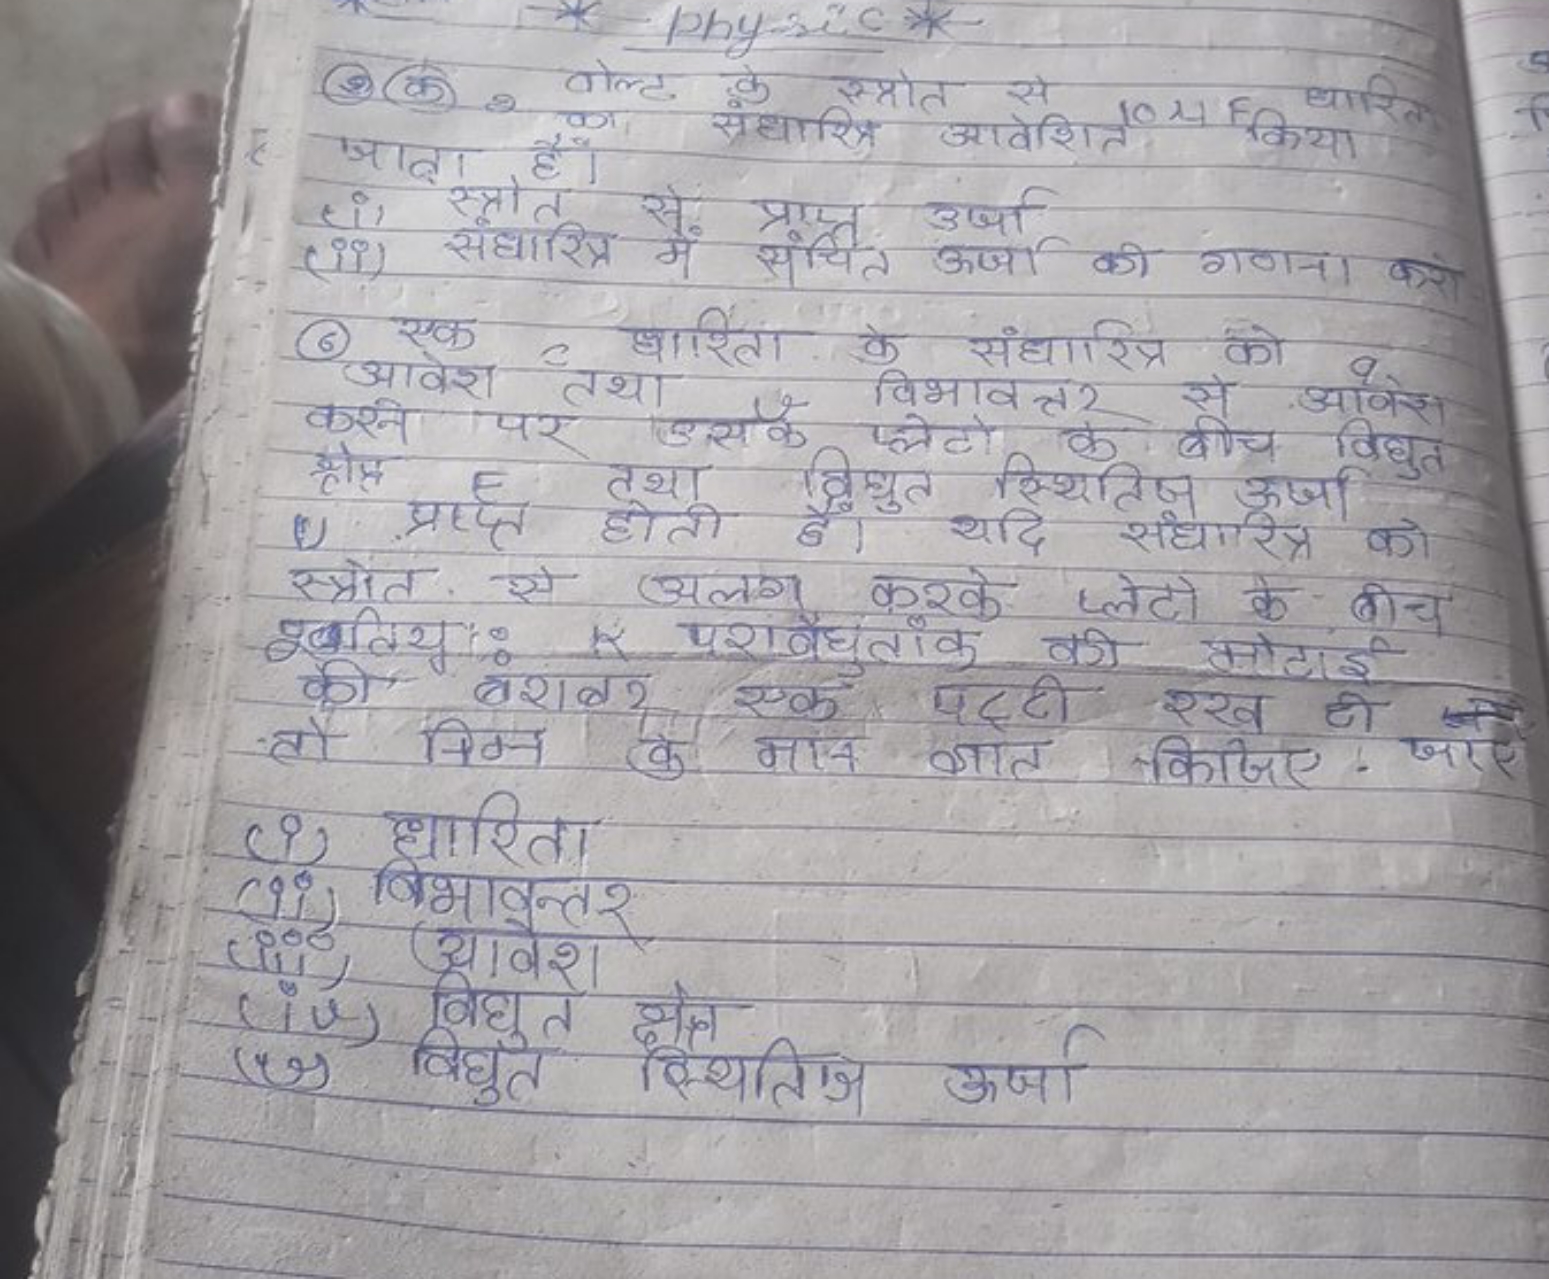 * Physic *
(क) वोल्ट के स्त्रोत से 10μF धारित
का संधारित्र आवेशित किया
जाता है।
(i) स्त्रोत से प्राप्त उर्जा
(ii) संधारित्र में संचित ऊर्जा की गणना करो
⑥ एक C धारिता के संधारित्र को q
आवेश तथा विभावन्तर से आवेश
करने पर उसके प्लेटो के बीच विधुत
क्षेत्र E तथा विधुत स्थितिज ऊर्जा
U प्राप्त होती है। यदि संधारित्र को
स्त्रोत से अलग करके प्लेटो के बीच
K परावैधुतांक की मोटाई
की बराबर एक पट्टी रख दी
तो निम्न के मान ज्ञात किजिए - जाए
(i) धारिता
(ii) विभावन्तर
(iii) आवेश
(iv) विधुत क्षेत्र
(v) विधुत स्थितिज ऊर्जा